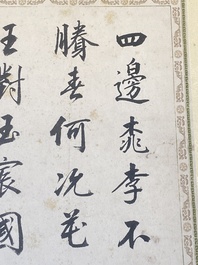 四邊桃李不
勝春何況花
王對玉宸國